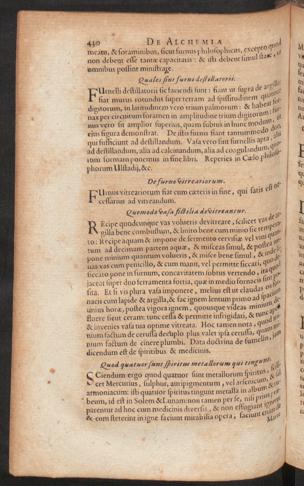 430 DE ALCHEMIA
meam, & foraminibus, sicut furnus philosophicus, excepto quod
non debent esse tantæ capacitatis: & isti debent simul stare,
omnibus possint ministrare.
Quales sint furni destillatorii.
FUrnelli destillatorii sic faciendi sunt: fiant
fiat murus rotundus super terram ad spissitudinem quatuor
digitorum, in latitudinem vero trium palmorum: & habeat
nax per circuitum foramen in amplitudine trium digitorum:
nus vero sit amplior superius, quam subtus in hunc modum,
eius figura demonstrat. De istis furnis fiant tantummodo duo,
qui sufficiunt ad destillandum. Vasa vero sint furnellis apta, alia
ad destillandum, alia ad calcinandum, alia ad coagulandum,
tum formam ponemus in fine libri. Reperies in Cælo philoso-
phorum Ulstadij, &c.
De furno vitreatorium.
FUrnus vitreatorius fiat cum cæteris in fine, qui satis est ne-
cessarius ad vitreandum.
Quomodo vasa fictilia devitreantur.
REcipe quodcunque vas volueris devitreare, scilicet vas de ar-
gilla bene combustum, & linito bene cum minio sic tempera-
to: Recipe aquam & impone de fermento cerevisiæ vel vini
tum ad decimam partem aquæ, & misceas simul, & postea
pone minium quantum volueris, & misce bene simul, &
vas cum pencillo, & cum manu, vel permitte siccari, quo de-
siccato pone in furnum, concavitatem subtus vertendo, ita quod
jaceat super duo ferramenta fortia, quæ in medio fornacis sint po-
sita. Et si vis plura vasa imponere, melius est ut claudas os for-
nacis cum lapide & argilla, & fac ignem lentum primo ad spatium
unius horæ, postea vigora ignem, quousque videas minium de-
fluere sicut ceram: tunc cessa & permitte infrigidari, & tunc aperi,
& invenies vasa tua optime vitreata. Hoc tamen nota, quod mi-
nium factum de cerussa de duplo plus valet ipsa cerussa, quam mi-
nium factum de cinere plumbi. Data doctrina de furnellis, jam
dicendum est de spiritibus & medicinis.
Quod quatuor sunt spiritus metallorum qui tingunt.
SCiendum ergo quod quatuor sunt metallorum spiritus, scili-
cet Mercurius, sulphur, auripigmentum, vel arsenicum, & sal
armoniacum: isti quatuor spiritus tingunt metalla in album & ru-
beum, id est in Solem & Lunam: non tamen per se, nisi prius præ-
parentur ad hoc cum medicinis diversis, & non effugiant ignem:
& cum steterint in igne faciunt mirabilia opera, faciunt enim